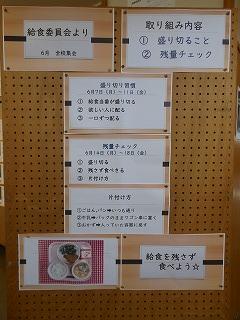 給食委員会より
6月 全校集会
取り組み内容
① 盛り切ること
② 残量チェック
盛り切り習慣
6月7日(月)～11日(金)
① 給食当番が盛り切る
② 欲しい人に配る
③ 一口ずつ配る
残量チェック
6月14日(月)～18日(金)
① 盛り切る
② 残さず食べきる
③ 片付け方
片付け方
①ごはんパン➡いつも通り
②牛乳➡パックのままワゴン車に置く
③おかず➡入っていた容器に戻す
給食を残さず
食べよう☆